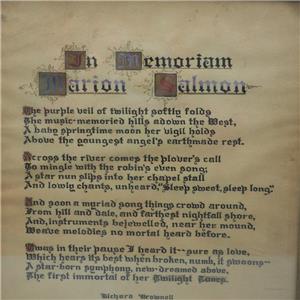 In Memoriam
Marion Salmon
The purple veil of twilight softly folds
The music-memoried hills adown the West,
A baby springtime moon her vigil holds
Above the youngest angel's earthmade rest.
Across the river comes the plover's call
To mingle with the robin's even song;
A star nun slips into her chapel stall
And lowly chants, unheard, "Sleep sweet, sleep long."
And soon a myriad song things crowd around,
From hill and dale, and farthest nightfall shore,
And, instruments bejewelled, near her mound,
Weave melodies no mortal heard before.
'Twas in their pause I heard it--sure as love,
Which hears its best when broken, numb, it swoons--
A star-born symphony, new-dreamed above,
The first immortal of her Twilight Tunes.
Richard